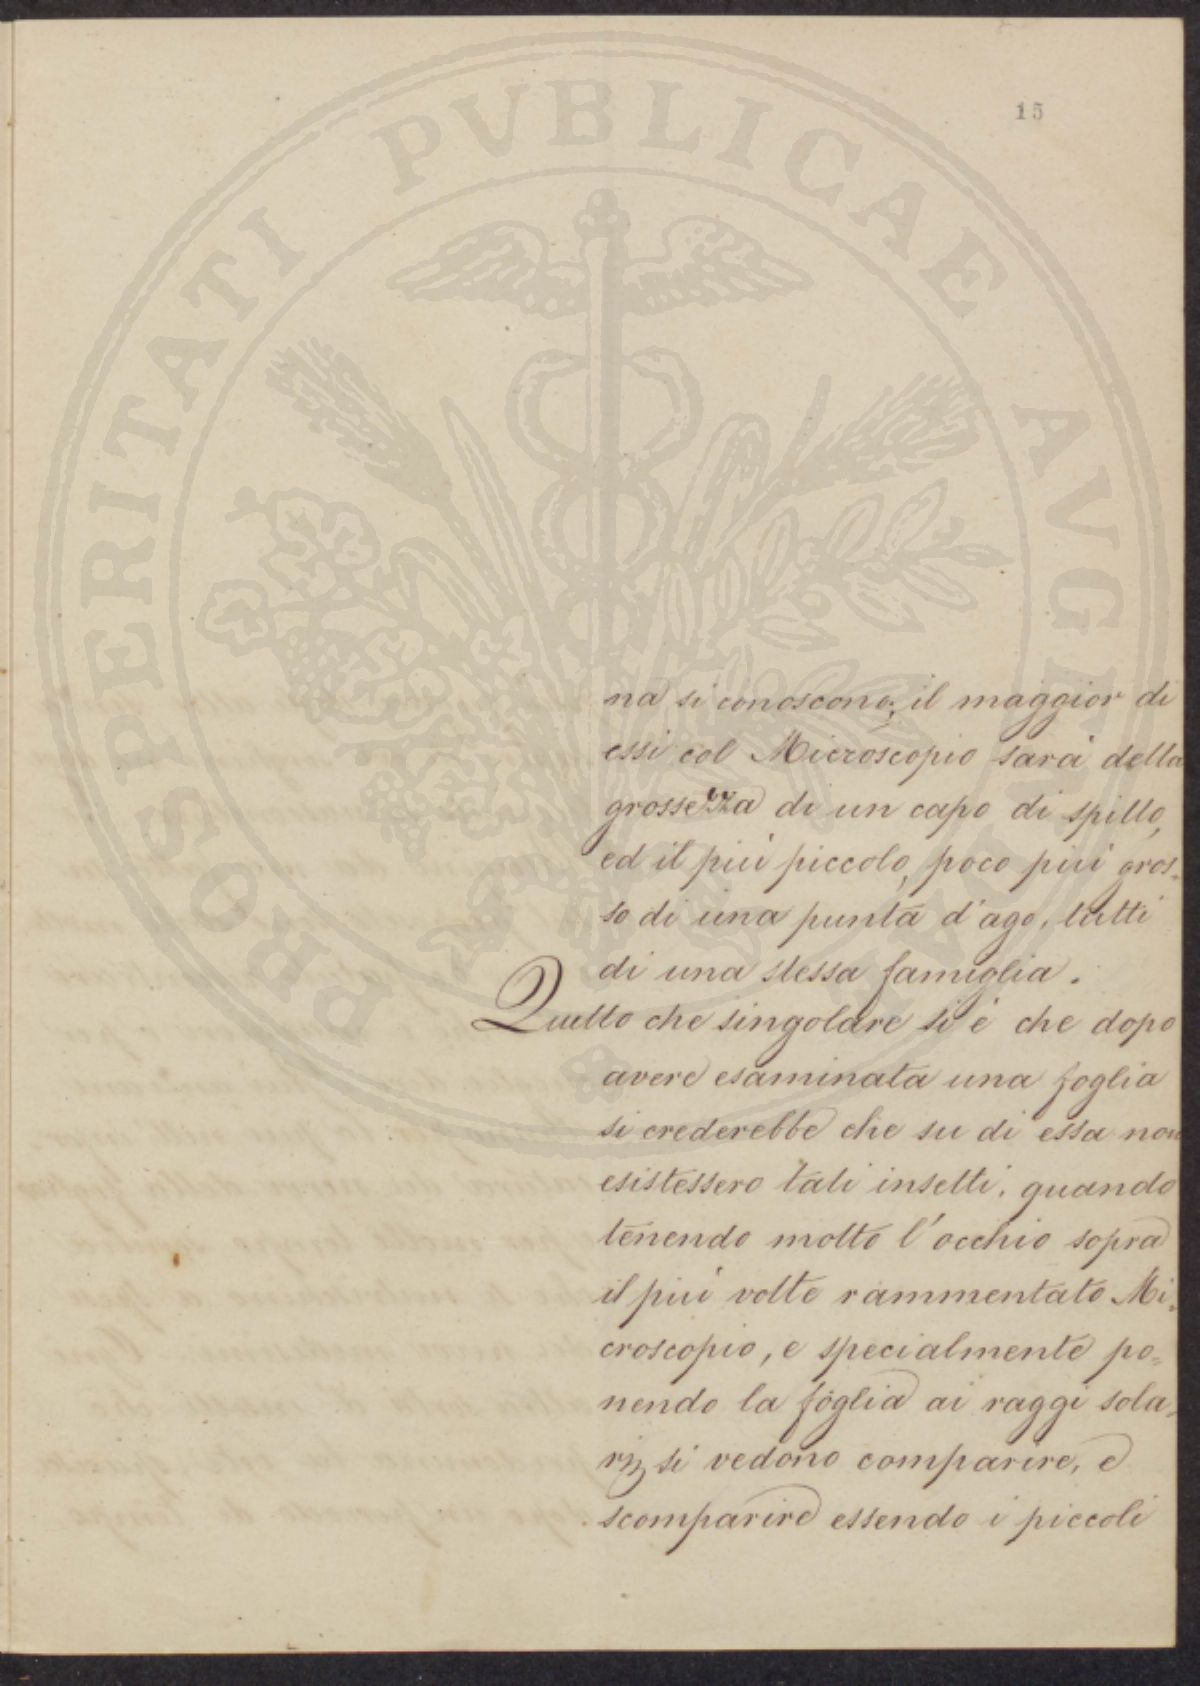 15
PROSPERITATI PUBLICAE AVGENDAE
na si conoscono; il maggior di
essi col Microscopio sarà della
grossezza di un capo di spillo,
ed il più piccolo, poco più gros=
so di una punta d'ago, tutti
di una stessa famiglia.
Quello che singolare si è che dopo
avere esaminata una foglia
si crederebbe che su di essa non
esistessero tali insetti, quando
tenendo molto l'occhio sopra
il più volte rammentato Mi=
croscopio, e specialmente po=
nendo la foglia ai raggi sola=
rij si vedono comparire, e
scomparire essendo i piccoli